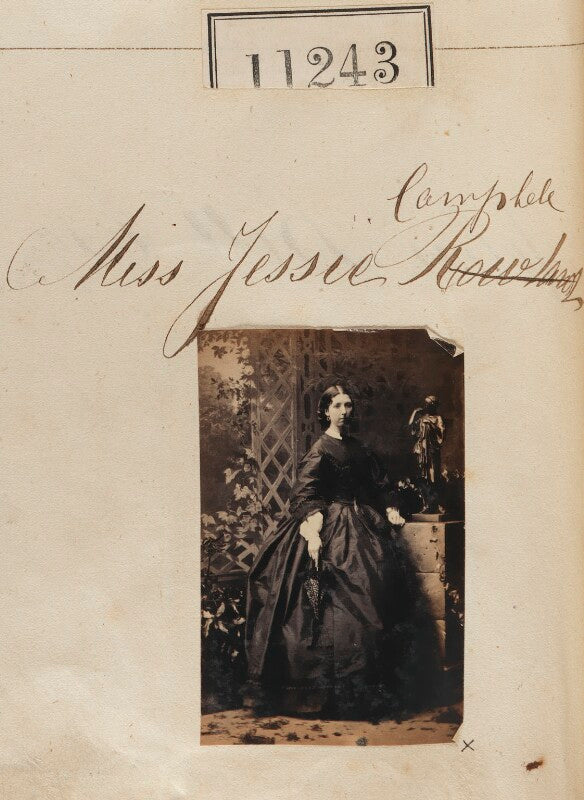 11243
Campbele
Miss Jessie Rowland
x